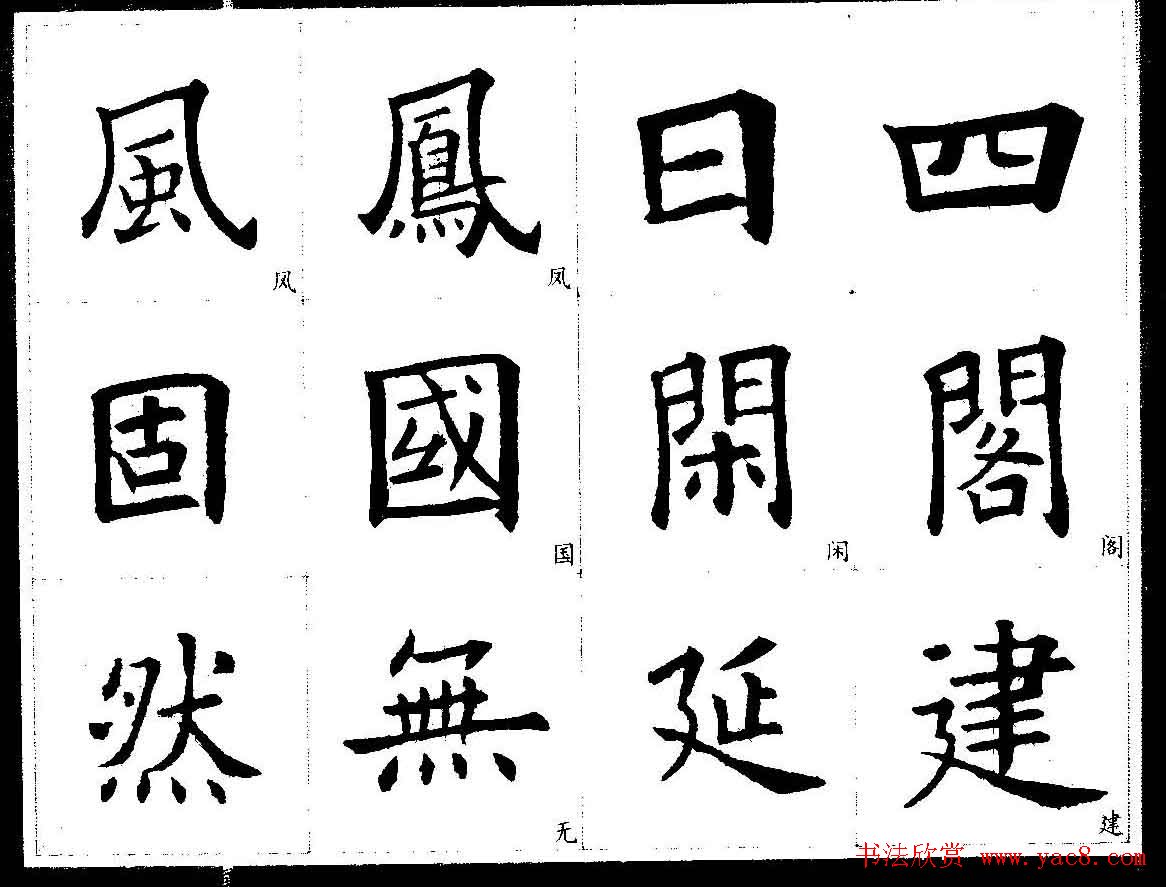 風 鳳 日 四
风 凤
固 國 閑 閣
国 闲 阁
然 無 延 建
无 建
书法欣赏 www.yac8.com